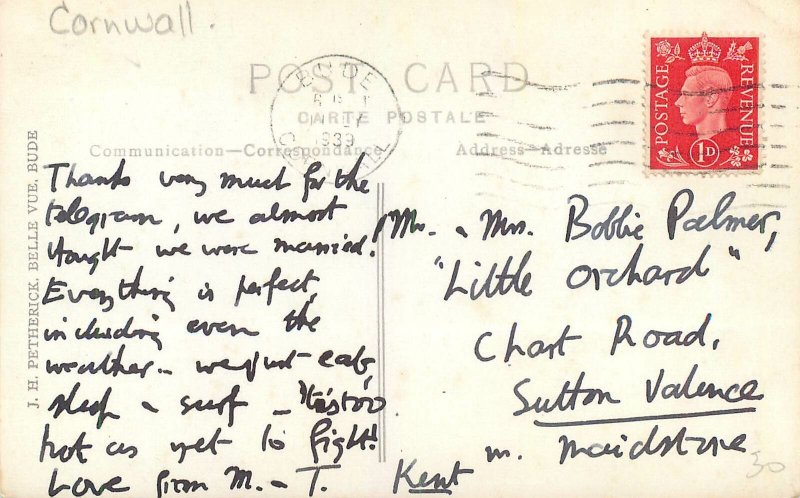 Cornwall.
POST CARD
CARTE POSTALE
Communication—Correspondance
Address—Adresse
BUDE
CORNWALL
POSTAGE
REVENUE
1D
J. H. PETHERICK, BELLE VUE, BUDE
Thanks very much for the
telegram, we almost
thought we were married!
Everything is perfect,
including even the
weather - we just eat,
sleep & surf - It is too
hot as yet to fight!
Love from M. & T.
Mr. & Mrs. Bobbie Palmer,
"Little Orchard"
Chart Road,
Sutton Valence
nr. Maidstone
Kent
30